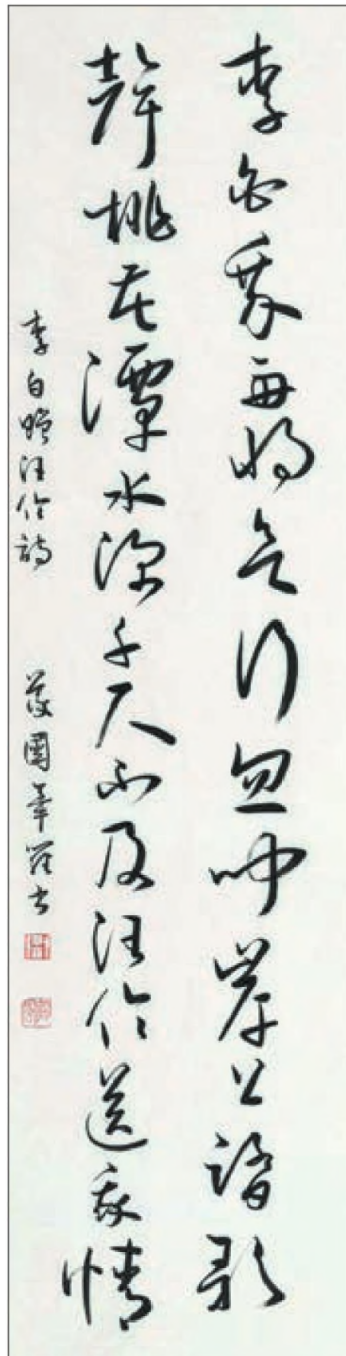 李白乘舟將欲行忽聞岸上踏歌
聲桃花潭水深千尺不及汪倫送我情
李白贈汪倫詩 園書